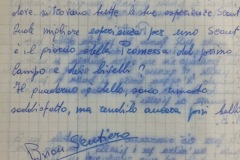 dove ritrovano tutte le sue esperienze Scout
Quale migliore esperienza per uno Scout
è il ricordo della Promessa del primo
campo e dei bivacchi?
Il quaderno è bello, sono rimasto
soddisfatto, ma rendilo ancora più bello
Buon Sentiero